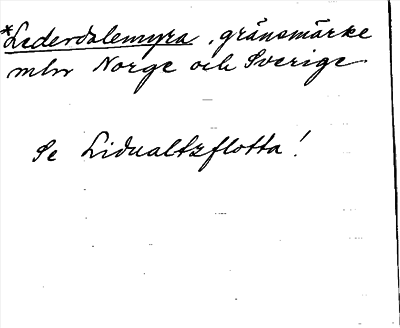 *Lederdalemyra, gränsmärke
mlnn Norge och Sverige
Se Lidualtzflotta!